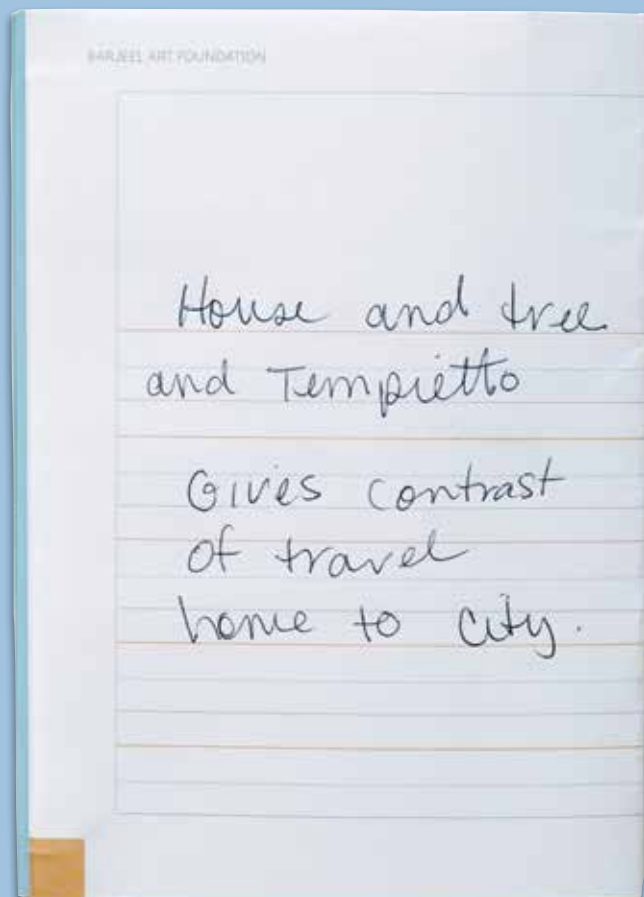 BARJEEL ART FOUNDATION
House and tree
and Tempietto
Gives contrast
of travel
home to city.